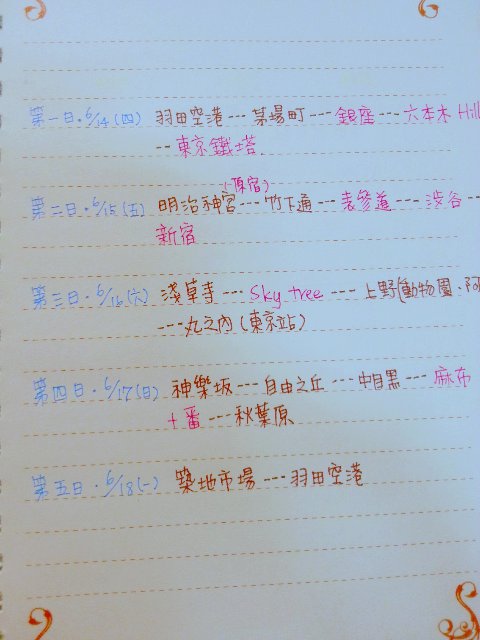 第一日·6/14(四) 羽田空港---茅場町---銀座---六本木 Hill
--東京鐵塔
(原宿)
第二日·6/15(五) 明治神宮---竹下通---表參道---渋谷--
新宿
第三日·6/16(六) 淺草寺---Sky tree---上野(動物園·阿
---丸之內(東京站)
第四日·6/17(日) 神樂坂---自由之丘---中目黑---麻布
十番---秋葉原
第五日·6/18(一) 築地市場---羽田空港